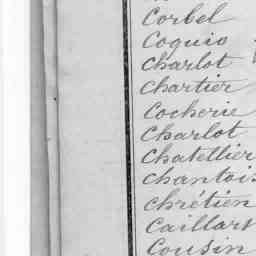 Corbel
Coquio
Charlot
Chartier
Cocherie
Charlot
Chatellier
Chantois
Chrétien
Caillart
Cousin